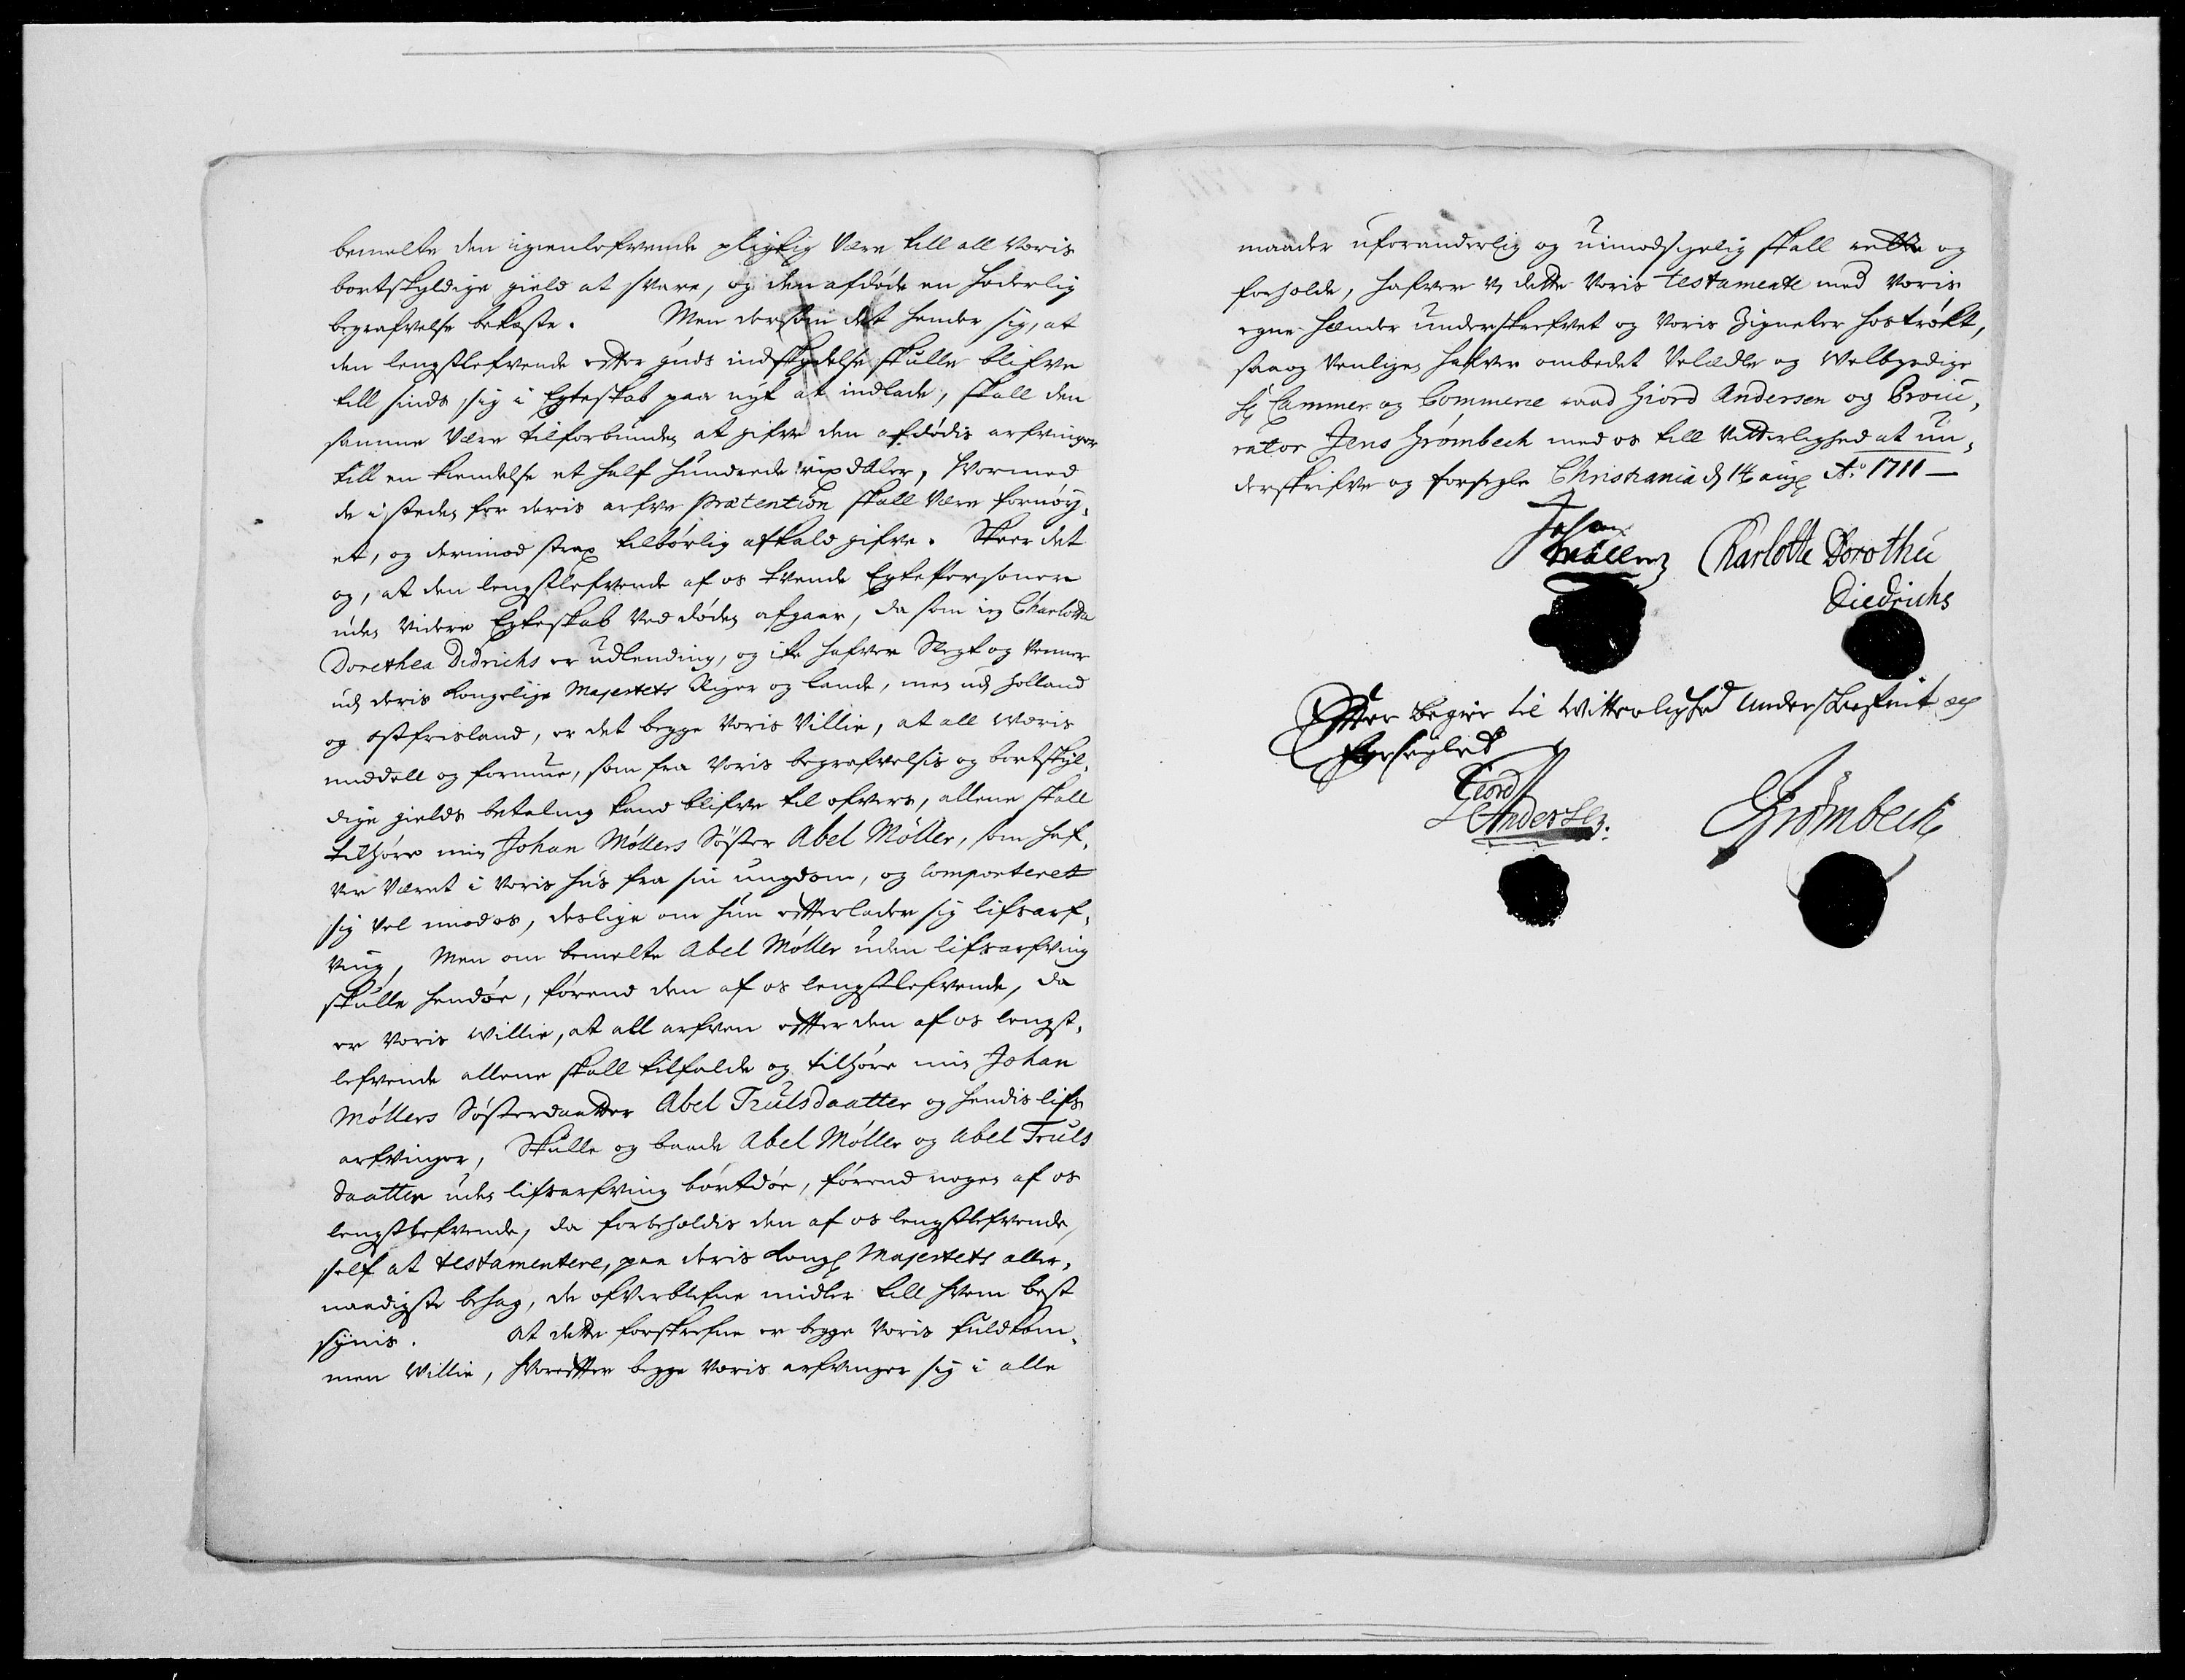 bemelte den igienlefvende pligtig være till all voris
bortskyldige gield at svare, og den afdøde en hæderlig
begrafvelse bekoste. Men dersom det hender sig, at
den lengstlefvende efter guds indskydelse skulle blifve
till sinds, sig i Egteskab paa nyt at indlade, skall den
samme være tilforbunden at gifve den afdødis arfvinger
till en kiendelse et half hundrede rixdaler, hvormed
de i steden for deris arfve prætention skall være fornøy,
et, og derimod strax tilbørlig afkald gifve. Skeer det
og, at den lengstlefvende af os tvende Egtepersoner
uden videre Egteskab ved døden afgaar, da som ieg Charlotta
Dorethea Didrichs er udlending, og iche hafver Slegt og venner
udj deris Kongelige Majestets Riger og lande, men udj Holland
og ostfrisland, er det begge voris villie, at all woris
middell og formue, som fra voris begrafvelsis og bortskyl,
dige gields betaling kand blifve til ofvers, allene skall
tilhøre min Johan Møllers Søster Abel Møller, som haf,
ver været i voris huus fra sin ungdom, og comporteret
sig vel imod os, deslige om hun efterlader sig lifsarf,
ving, Men om bemelte Abel Møller uden lifsarfving
skulle hendøe, førend den af os lengstlefvende, da
er voris willie, at all arfven efter den af os lengst,
lefvende allene skall tilfalde og tilhøre min Johan
Møllers Søsterdaatter Abel Trulsdaatter og hendis lifs
arfvinger, Skulle og baade Abel Møller og Abel Truls
daatter uden lifsarfving bortdøe, førend nogen af os
lengstlefvende, da forbeholdis den af os lengstlefvende,
self at testamentere, paa deris Kongl Majestets aller,
naadigste behag, de ofverblefne midler till hvem best
synis. At dette forskrefne er begge voris fuldkom,
men Willie, hvorefter begge voris arfvinger sig i alle
maader uforanderlig og uimodsigelig skall rette og
forholde, hafver vj dette voris testamente med voris
egne hænder underskrefvet og voris Zigneter hostrøkt,
saa og venligen hafver ombedet Velædle og Welbyrdige
Hr Cammer og Commerce raad Giord Andersen og Procu,
rator Jens Grømbech med os till vitterlighed at un,
derskrifve og forsegle Christiania d 14 aug Ao 1711
Johan
Møller Charlotte Dorothee
Diedrichs
Efter begier til Witterlighed underskrefvit og
forseiglet
Giord
Andersen: Grømbech